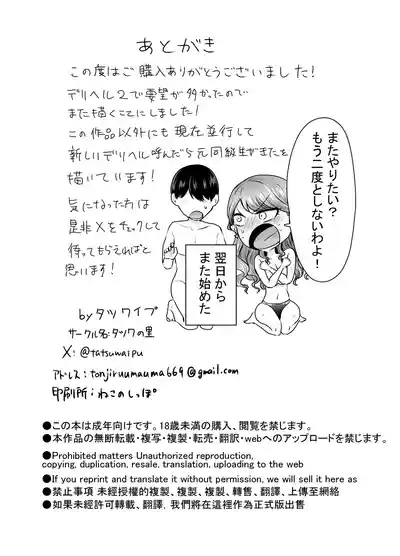 あとがき
この度はご購入ありがとうございました!
デリヘル2で要望が多かったので
また描くことにしました!
この作品以外にも現在並行して
新しいデリヘル呼んだら元同級生がきたを
描いています!
気になった方は
是非Xをチェックして
待ってもらえればと
思います!
またやりたい?
もう二度としないわよ!
翌日から
また始めた
byタツワイプ
サークル名:タツワの里
X:@tatsuwaipu
アドレス:tonjiruumauma669@gmail.com
印刷所:ねこのしっぽ
●この本は成年向けです。18歳未満の購入、閲覧を禁じます。
●本作品の無断転載・複写・複製・転売・翻訳・webへのアップロードを禁じます。
●Prohibited matters Unauthorized reproduction,
copying, duplication, resale, translation, uploading to the web
●If you reprint and translate it without permission, we will sell it here as
●禁止事項 未經授權的複製、複製、複製、轉售、翻譯、上傳至網絡
●如果未經許可轉載、翻譯，我們將在這裡作為正式版出售